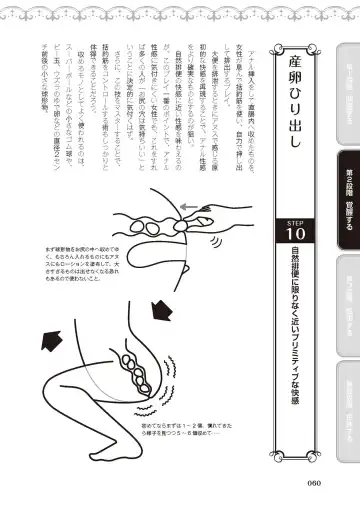 第2段階 覚醒する
STEP
10
自然排便に限りなく近いプリミティブな快感
産卵ひり出し
アナル挿入をし、直腸内へ収めたものを、
女性が息んで括約筋を使い、自力で押し出
して排出するプレイ。
大便を排泄するときにアヌスで感じる原
初的な快感を再現することで、アナル性感
をより確実なものとするのが狙い。
自然排便の快感に近い性感を味わえるの
が、このプレイ一番のポイント。アナル
性感に気付けない女性でも、これをすれ
ば多くの人が「お尻の穴は気持ちいい」と
いうことに決定的に気付くはず。
さらに、この技をマスターすることで、
括約筋をコントロールする術もしっかりと
体得できることだろう。
収めるモノとしてよく使われるのは、
スーパーボールなどの小さなゴム球や、
ビー玉、ウズラのゆで卵などの直径2セン
チ前後の小さな球形物。
まず球形物をお尻の中へ収めてゆ
く。もちろん入れるものにもアヌ
スにもローションを塗布して。大
きすぎるものは出せなくなる恐れ
もあるので使わないこと。
初めてならまずは1〜2個、慣れてきた
ら様子を見つつ5〜6個収めて……
060